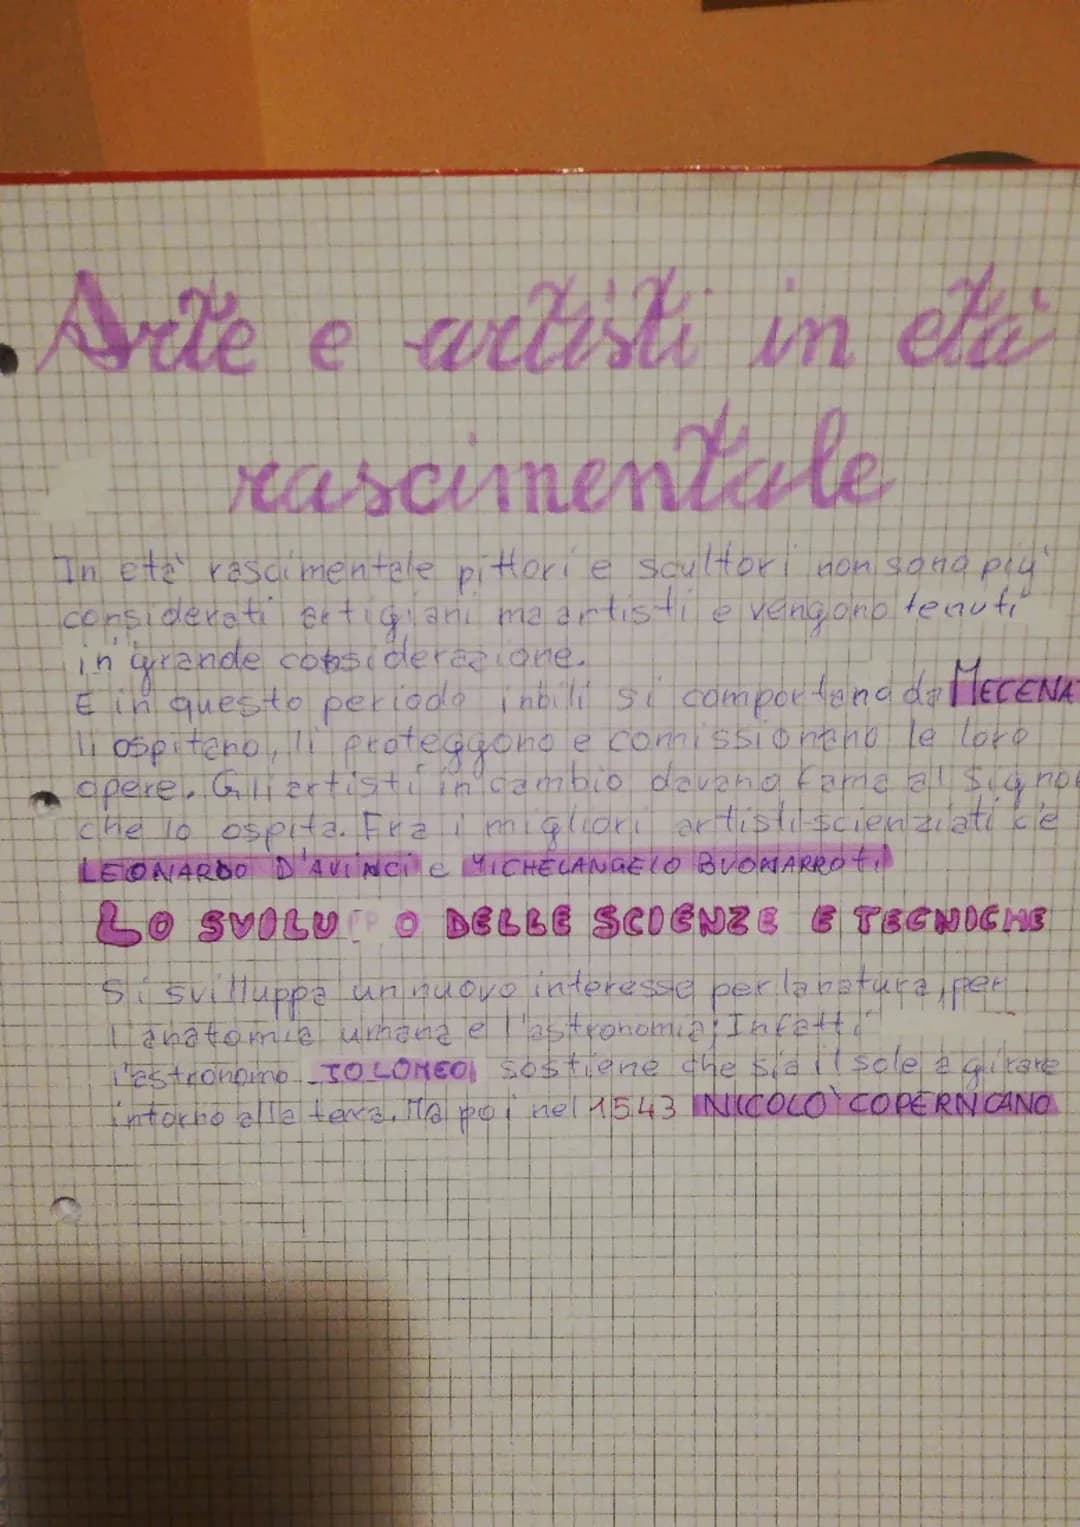 Arte e artisti in età
rascimentale
In età rascimentale pittori e scultori non sono più
considerati artigiani ma artisti e vengono tenuti
in grande considerazione.
E in questo periodo i nobili si comportano da MECENAT
li ospitano, li proteggono e comissionano le loro
opere. Gli artisti in cambio davano fama al signor
che lo ospita. Fra i migliori artisti-scienziati c'è
LEONARDO D'AVINCI e MICHELANGELO BUONARROTI
LO SVILUPPO DELLE SCIENZE E TECNICHE
Si sviluppa un nuovo interesse per la natura, per
l'anatomia umana e l'astronomia; Infatti
l'astronomo TOLOMEO sostiene che sia il sole a girare
intorno alla terra. Ma poi nel 1543 NICCOLO' COPERNICANO